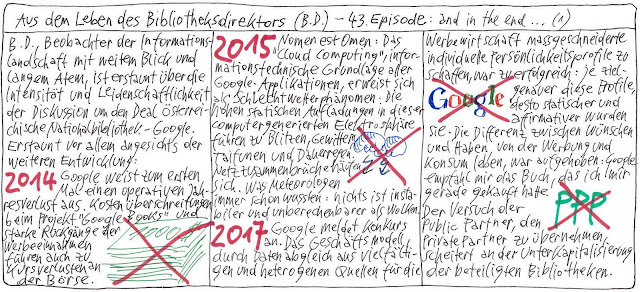 Aus dem Leben des Bibliotheksdirektors (B.D.) – 43. Episode: and in the end ... (1)
B.D., Beobachter der Informations-
landschaft mit weitem Blick und
langem Atem, ist erstaunt über die
Intensität und Leidenschaftlichkeit
der Diskussion um den Deal Österrei-
chische Nationalbibliothek – Google.
Erstaunt vor allem angesichts der
weiteren Entwicklung:
2014 Google weist zum ersten
Mal einen operativen Jah-
resverlust aus. Kostenüberschreitungen
beim Projekt "Google Books" und
starke Rückgänge der
Werbeeinnahmen
führen auch zu
Kursverlusten an
der Börse.
2015 Nomen est Omen: Das
"Cloud Computing", infor-
mationstechnische Grundlage aller
Google-Applikationen, erweist sich
als Schlechtwetterphänomen. Die
hohen statischen Aufladungen in dieser
computergenerierten Elektrosphäre
führen zu Blitzen, Gewittern
Taifunen und Dauerregen.
Netzzusammenbrüche häufen
sich. Was Meteorologen
immer schon wussten: nichts ist insta-
biler und unberechenbarer als Wolken.
2017 Google meldet Konkurs
an. Das Geschäftsmodell,
durch Datenabgleich aus vielfälti-
gen und heterogenen Quellen für die
Werbewirtschaft massgeschneiderte
individuelle Persönlichkeitsprofile zu
schaffen, war zu erfolgreich: je ziel-
genauer diese Profile,
Google
desto statischer und
affirmativer wurden
sie. Die Differenz zwischen Wünschen
und Haben, von der Werbung und
Konsum leben, war aufgehoben: Google
empfahl mir das Buch, das ich mir
gerade gekauft hatte.
Der Versuch der
PPP
Public Partner, den
Private Partner zu übernehmen,
scheitert an der Unterkapitalisierung
der beteiligten Bibliotheken.